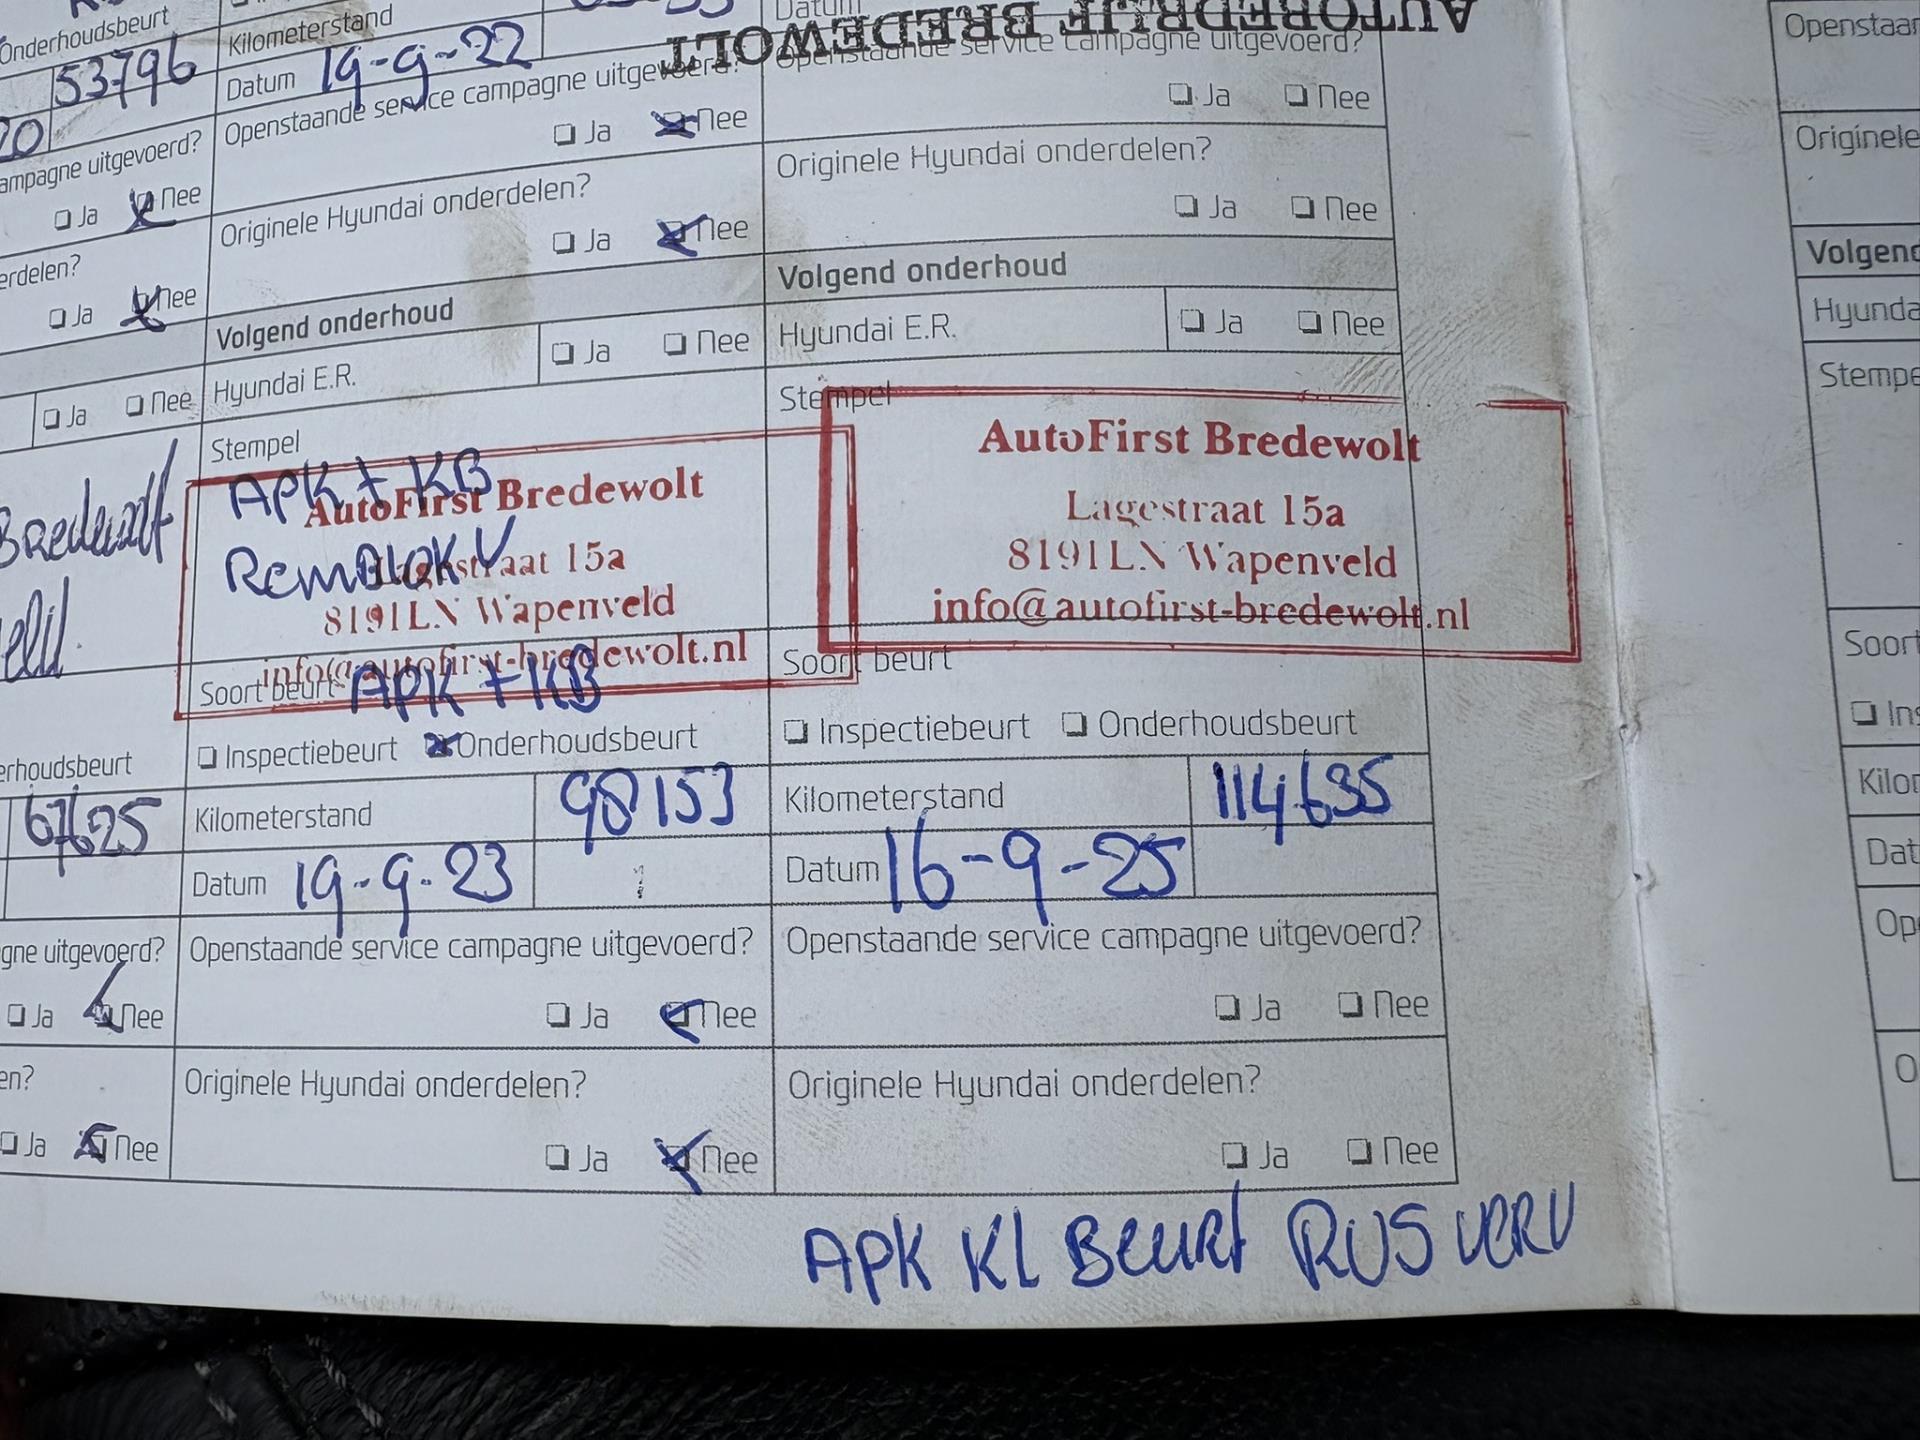 Onderhoudsbeurt
53796
20
ampagne uitgevoerd?
Ja Nee
erdelen?
Ja Nee
Ja Nee
Bredewolt
erhoudsbeurt
67625
gne uitgevoerd?
Ja Nee
en?
Ja Nee
Kilometerstand
Datum 19-9-22
Openstaande service campagne uitgevoerd?
Ja Nee
Originele Hyundai onderdelen?
Ja Nee
Volgend onderhoud
Hyundai E.R. Ja Nee
Stempel
APK + KB
AutoFirst Bredewolt
RemBlok V
Lagestraat 15a
8191LN Wapenveld
info@autofirst-bredewolt.nl
Soort beurt APK + KB
Inspectiebeurt Onderhoudsbeurt
Kilometerstand 98153
Datum 19-9-23
Openstaande service campagne uitgevoerd?
Ja Nee
Originele Hyundai onderdelen?
Ja Nee
Datum
AUTOBEDRIJF BREDEWOLT
Openstaande service campagne uitgevoerd?
Ja Nee
Originele Hyundai onderdelen?
Ja Nee
Volgend onderhoud
Hyundai E.R. Ja Nee
Stempel
AutoFirst Bredewolt
Lagestraat 15a
8191LN Wapenveld
info@autofirst-bredewolt.nl
Soort beurt
Inspectiebeurt Onderhoudsbeurt
Kilometerstand 114635
Datum 16-9-25
Openstaande service campagne uitgevoerd?
Ja Nee
Originele Hyundai onderdelen?
Ja Nee
APK KL Beurt RUS VERV
Openstaan
Originele
Volgend
Hyunda
Stempe
Soort
Ins
Kilor
Dat
Op
O